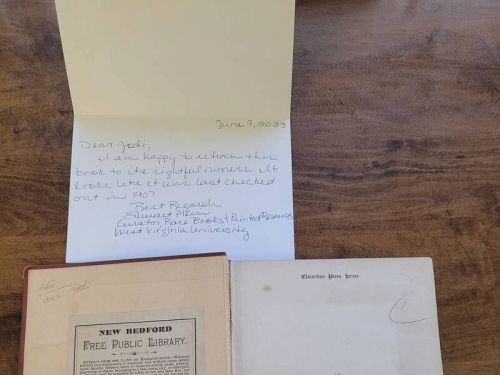 June 9, 2023
Dear Jodi,
I am happy to return this
book to its rightful owners. It
looks like it was last checked
out in 1907
Best Regards
Stewart Plein
Curator Rare Books & Printed Resources
West Virginia University
Clarendon Press Series
NEW BEDFORD
FREE PUBLIC LIBRARY.
EXTRACT FROM THE LAWS OF MASSACHUSETTS.—WHOEVER